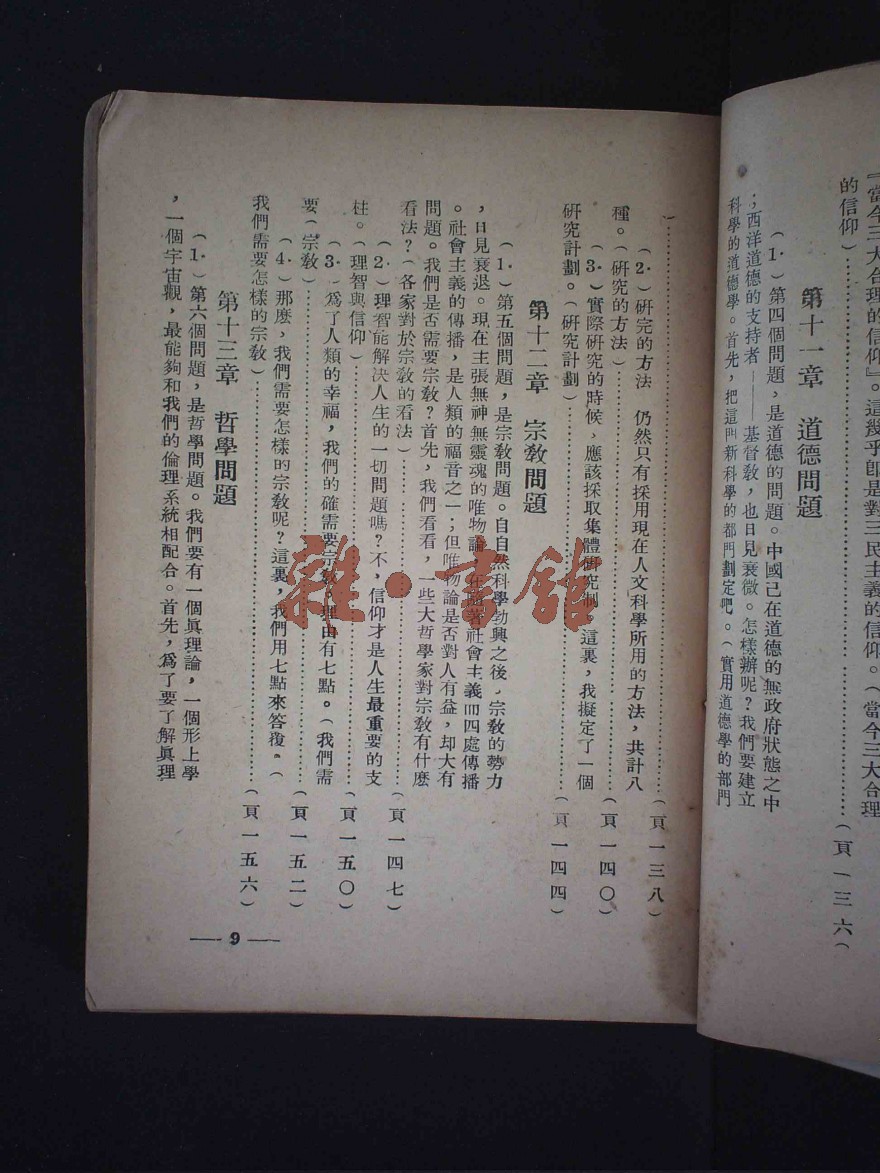 『當今三大合理的信仰』。這幾乎卽是對三民主義的信仰。(當今三大合理
的信仰)……(頁一三六(
第十一章　道德問題
(1.)第四個問題，是道德的問題。中國已在道德的無政府狀態之中
；西洋道德的支持者——基督教，也日見衰微。怎樣辦呢？我們要建立
科學的道德學。首先，把這門新科學的部門劃定吧。(實用道德學的部門
)……(頁一三八)
(2.)硏完的方法　仍然只有採用現在人文科學所用的方法，共計八
種。(硏究的方法)……(頁一四〇)
(3.)實際硏究的時候，應該採取集體硏究制。這裏，我擬定了一個
硏究計劃。(硏究計劃)……(頁一四四)
第十二章　宗教問題
(1.)第五個問題，是宗教問題。自自然科學勃興之後，宗教的勢力
，日見衰退。現在主張無神無靈魂的唯物論，在隨著社會主義而四處傳播
。社會主義的傳播，是人類的福音之一；但唯物論是否對人有益，却大有
問題。我們是否需要宗教？首先，我們看看，一些大哲學家對宗教有什麽
看法？(各家對於宗教的看法)……(頁一四七)
(2.)理智能解決人生的一切問題嗎？不，信仰才是人生最重要的支
柱。(理智與信仰)……(頁一五〇)
(3.)爲了人類的幸福，我們的確需要宗教。理由有七點。(我們需
要宗教)……(頁一五二)
(4.)那麽，我們需要怎樣的宗教呢？這裏，我們用七點來答復。(
我們需要怎樣的宗教)……(頁一五六)
第十三章　哲學問題
(1.)第六個問題，是哲學問題。我們要有一個眞理論，一個形上學
，一個宇宙觀，最能夠和我們的倫理系統相配合。首先，爲了要了解眞理
— 9 —
雜·書館